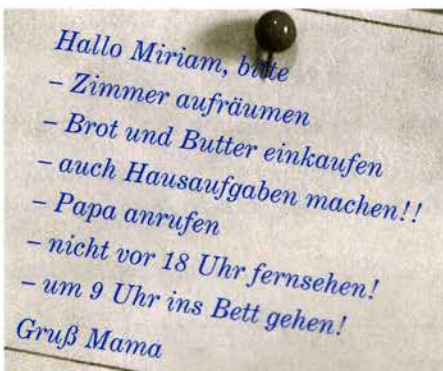 Hallo Miriam, bitte
– Zimmer aufräumen
– Brot und Butter einkaufen
– auch Hausaufgaben machen!!
– Papa anrufen
– nicht vor 18 Uhr fernsehen!
– um 9 Uhr ins Bett gehen!
Gruß Mama